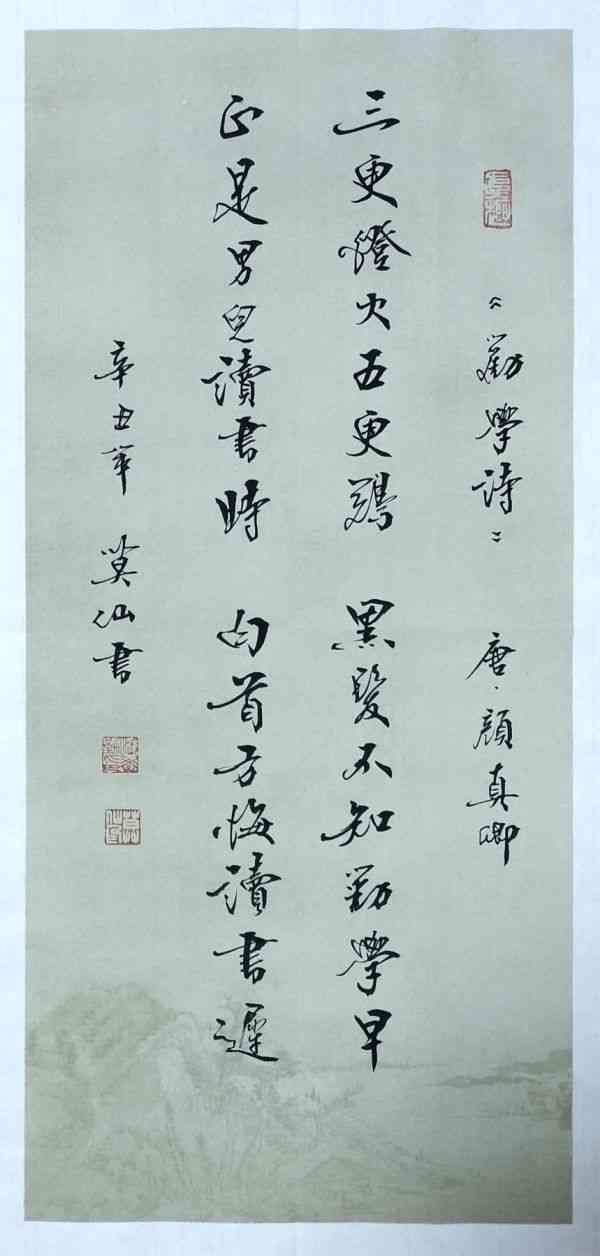 《勸學詩》 唐·顏真卿
三更燈火五更鷄 黑髮不知勤學早
正是男兒讀書時 白首方悔讀書遲
辛丑年 莫仙書